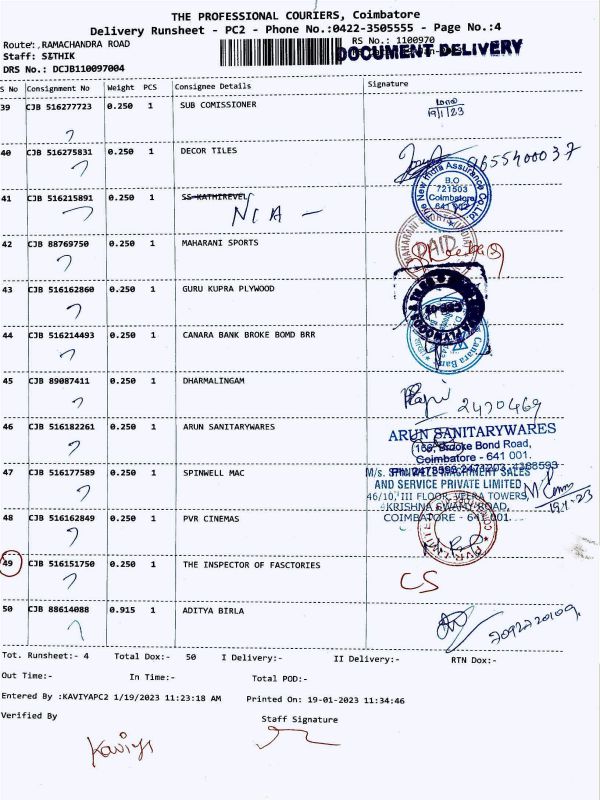 THE PROFESSIONAL COURIERS, Coimbatore
Delivery Runsheet - PC2 - Phone No.:0422-3505555 - Page No.:4
Route:,RAMACHANDRA ROAD RS No.: 1100970
Staff: SETHIK DOCUMENT DELIVERY
DRS No.: DCJB110097004
S No Consignment No Weight PCS Consignee Details Signature
39 CJB 516277723 0.250 1 SUB COMISSIONER
19/1/23
40 CJB 516275831 0.250 1 DECOR TILES 9655400037
The New India Assurance Co. Ltd
B.O
721503
Coimbatore
641 002
41 CJB 516215891 0.250 1 SS KATHIREVEL
NIA -
42 CJB 88769750 0.250 1 MAHARANI SPORTS
MAHARANI
PAID
43 CJB 516162860 0.250 1 GURU KUPRA PLYWOOD
44 CJB 516214493 0.250 1 CANARA BANK BROKE BOMD BRR
Canara Bank
45 CJB 89087411 0.250 1 DHARMALINGAM
2470469
46 CJB 516182261 0.250 1 ARUN SANITARYWARES
ARUN SANITARYWARES
Brooke Bond Road,
Coimbatore - 641 001.
47 CJB 516177589 0.250 1 SPINWELL MAC
M/s. SPINWELL MACHINERY SALES
AND SERVICE PRIVATE LIMITED
46/10, III FLOOR, VEERA TOWERS,
KRISHNA SWAMY ROAD,
COIMBATORE - 641 001.
19.1.23
48 CJB 516162849 0.250 1 PVR CINEMAS
49 CJB 516151750 0.250 1 THE INSPECTOR OF FASCTORIES
CS
50 CJB 88614088 0.915 1 ADITYA BIRLA
7092720109
Tot. Runsheet:- 4 Total Dox:- 50 I Delivery:- II Delivery:- RTN Dox:-
Out Time:- In Time:- Total POD:-
Entered By :KAVIYAPC2 1/19/2023 11:23:18 AM Printed On: 19-01-2023 11:34:46
Verified By Staff Signature
Kaviya